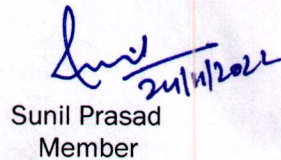 Sunil
24/11/2022
Sunil Prasad
Member